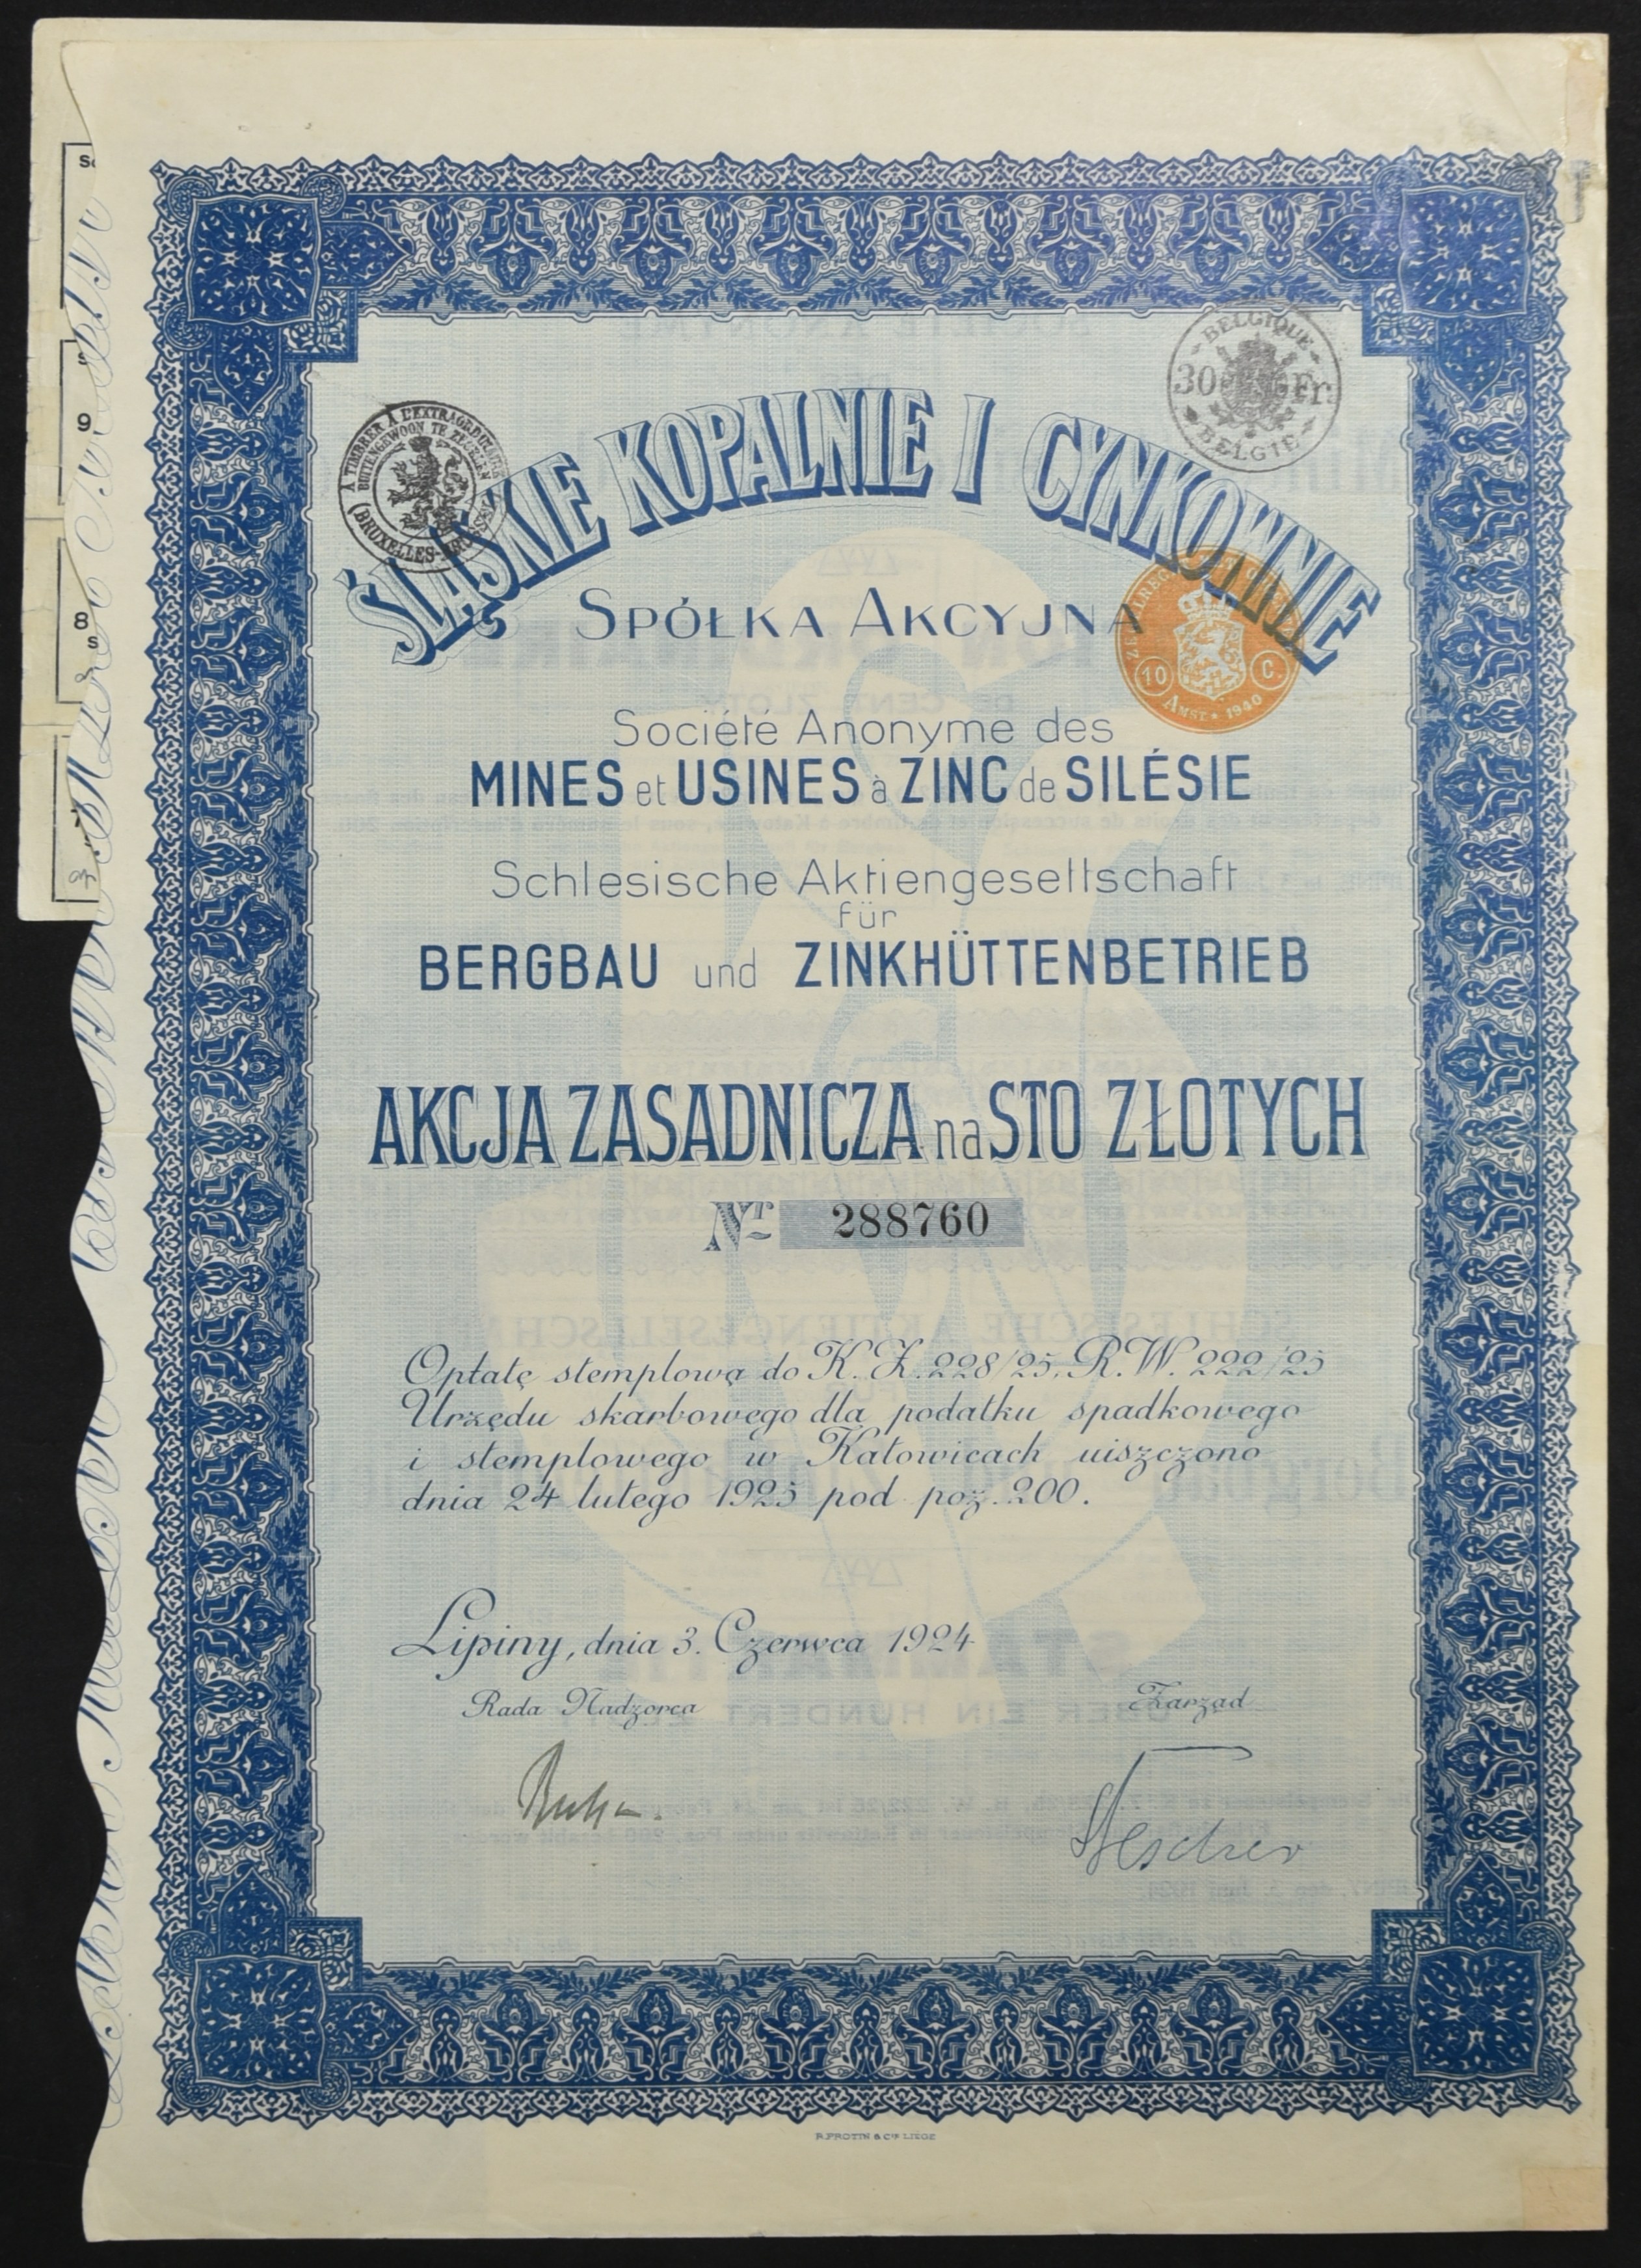 BELGIQUE
30 Fr.
BELGIË
À TIMBRER À L'EXTRAORDINAIRE
BUITENGEWOON TE ZEGELEN
(BRUXELLES-BRUSSEL)
ŚLĄSKIE KOPALNIE I CYNKOWNIE
SPÓŁKA AKCYJNA
10 C.
AMST. 1940
Société Anonyme des
MINES et USINES à ZINC de SILÉSIE
Schlesische Aktiengesellschaft
für
BERGBAU und ZINKHÜTTENBETRIEB
AKCJA ZASADNICZA na STO ZŁOTYCH
Nr 288760
Opłatę stemplową do K. Z. 228/25, R. W. 222/25
Urzędu skarbowego dla podatku spadkowego
i stemplowego w Katowicach uiszczono
dnia 24 lutego 1925 pod poz. 200.
Lipiny, dnia 3. Czerwca 1924
Rada Nadzorca Zarząd
9
8
P. PROTIN & Cie LIÈGE